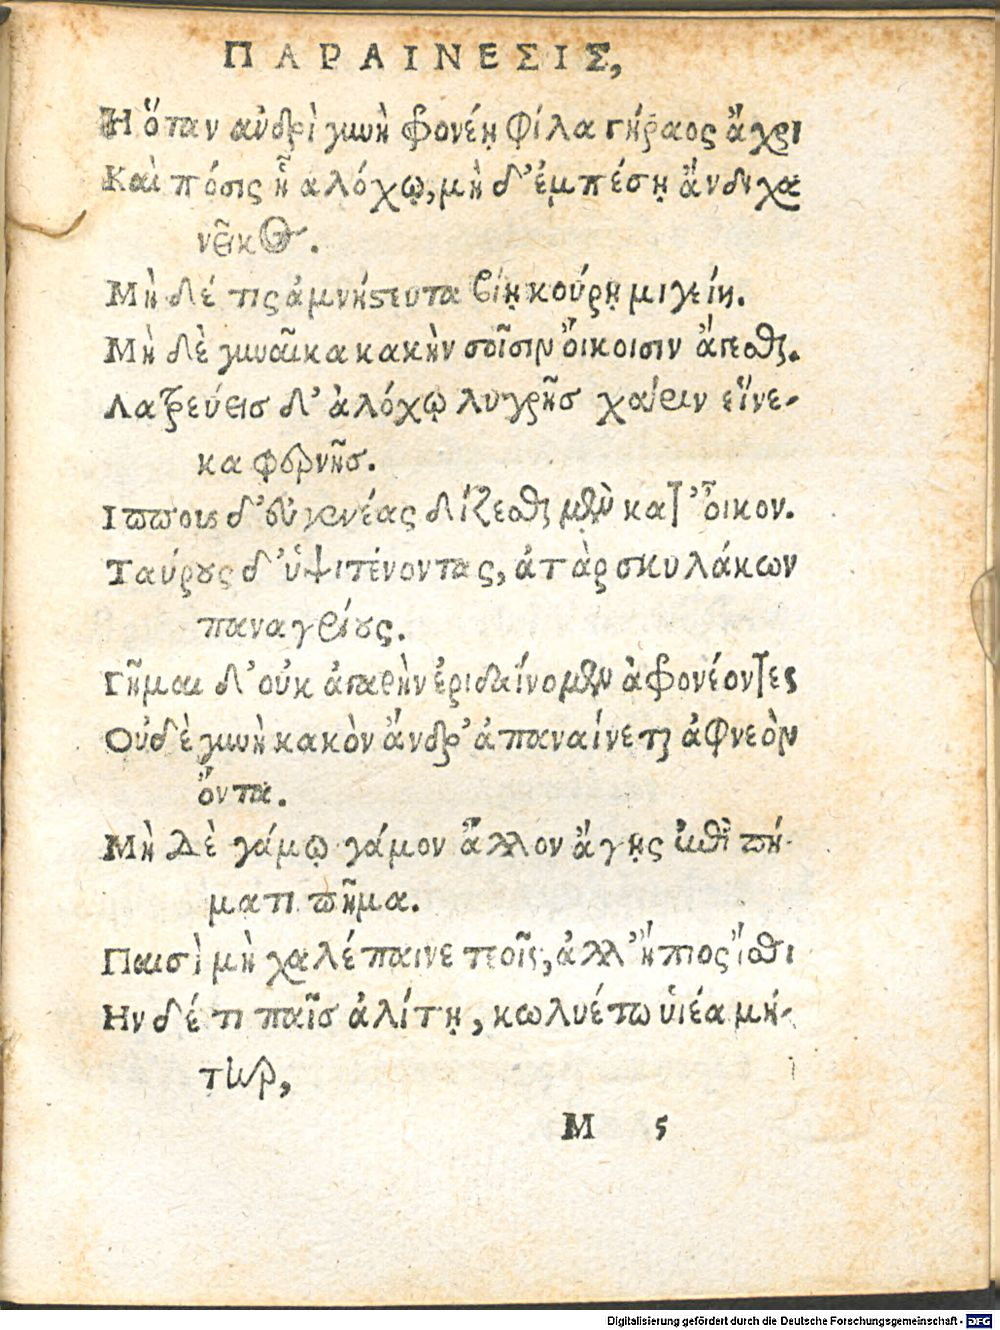 ΠΑΡΑΙΝΕΣΙΣ,
Η ὅταν ἀνδρὶ γυνὴ φρονέῃ φίλα γήραος ἄχρι
Καὶ πόσις ᾗ ἀλόχῳ, μὴ δ' ἐμπέσῃ ἄνδιχα
νεῖκος.
Μὴ δέ τις ἀμνήστευτα βίῃ κούρῃ μιγείη.
Μὴ δὲ γυναῖκα κακὴν σοῖσιν οἴκοισιν ἄγεσθαι.
Λατρεύεισ δ' ἀλόχῳ λυγρῆσ χάριν εἵνε-
κα φερνῆσ.
Ιπποις δ' εὐγενέας διζεσθαι μὲν κατ' οἶκον.
Ταύρους δ' ὑψιτένοντας, ἀτὰρ σκυλάκων
παναγρίους.
Γῆμαι δ' οὐκ ἀγαθὴν ἐριδαίνομεν ἀφρονέοντες
Οὐδὲ γυνὴ κακὸν ἄνδρ' ἀπαναίνεται ἀφνεὸν
ὄντα.
Μὴ δὲ γάμῳ γάμον ἄλλον ἄγῃς ἐπὶ πή-
ματι πῆμα.
Παισὶ μὴ χαλέπαινε τεοῖς, ἀλλ' ἤπιος ἴσθι
Ην δέ τι παῖσ ἀλίτῃ, κωλυέτω υἱέα μή-
τηρ,
M 5
Digitalisierung gefördert durch die Deutsche Forschungsgemeinschaft - DFG